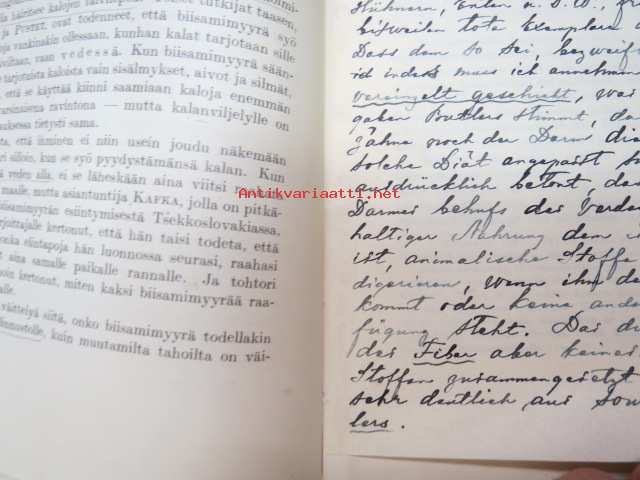 lla häiritsee kalojen talvilepoa. Toiset tutkijat taasen,
ja PUSTET, ovat todenneet, että biisamimyyrä syö
ja vankinakin ollessaan, kunhan kalat tarjotaan sille
vedessä. Kun biisamimyyrä sään-
tarjotuista kaloista vain sisälmykset, aivot ja silmät,
, että se käyttää kiinni saamiaan kaloja enemmän
varsinaisena ravintona — mutta kalanviljelylle on
tietysti sama.
ta, että ihminen ei niin usein joudu näkemään
silloin, kun se syö pyydystämänsä kalan. Kun
veden alla, ei se läheskään aina viitsi nousta
maalle, mutta asiantuntija KAFKA, jolla on pitkä-
biisamimyyrän esiintymisestä Tšekkoslovakiassa,
kirjoittajalle kertonut, että hän taisi todeta, että
jonka elintapoja hän luonnossa seurasi, raahasi
aina samalle paikalle rannalle. Ja tohtori
kertonut, miten kaksi biisamimyyrää raa-
alle.
väittelyä siitä, onko biisamimyyrä todellakin
kuin muutamilta tahoilta on väi-
Antikvariaatti.net
Hühnern, Enten u. D. W.,
bisweilen tote Exemplare
Dass dem so sei, bezweif
ich indess muss ich annehmen
vereinzelt geschieht, war
gaben Butlers stimmt, da
Zähne noch der Darm die
solche Diät angepasst s
ausdrücklich betont, da
Darmes behufs der Verda
haltiger Nahrung dem
ist, animalische Stoffe
digerieren, wenn ihm de
kommt oder keine ande
fügung steht. Das di
des Fiber aber keines
Stoffen zusammengesetzt
sehr deutlich aus Sow
lers.